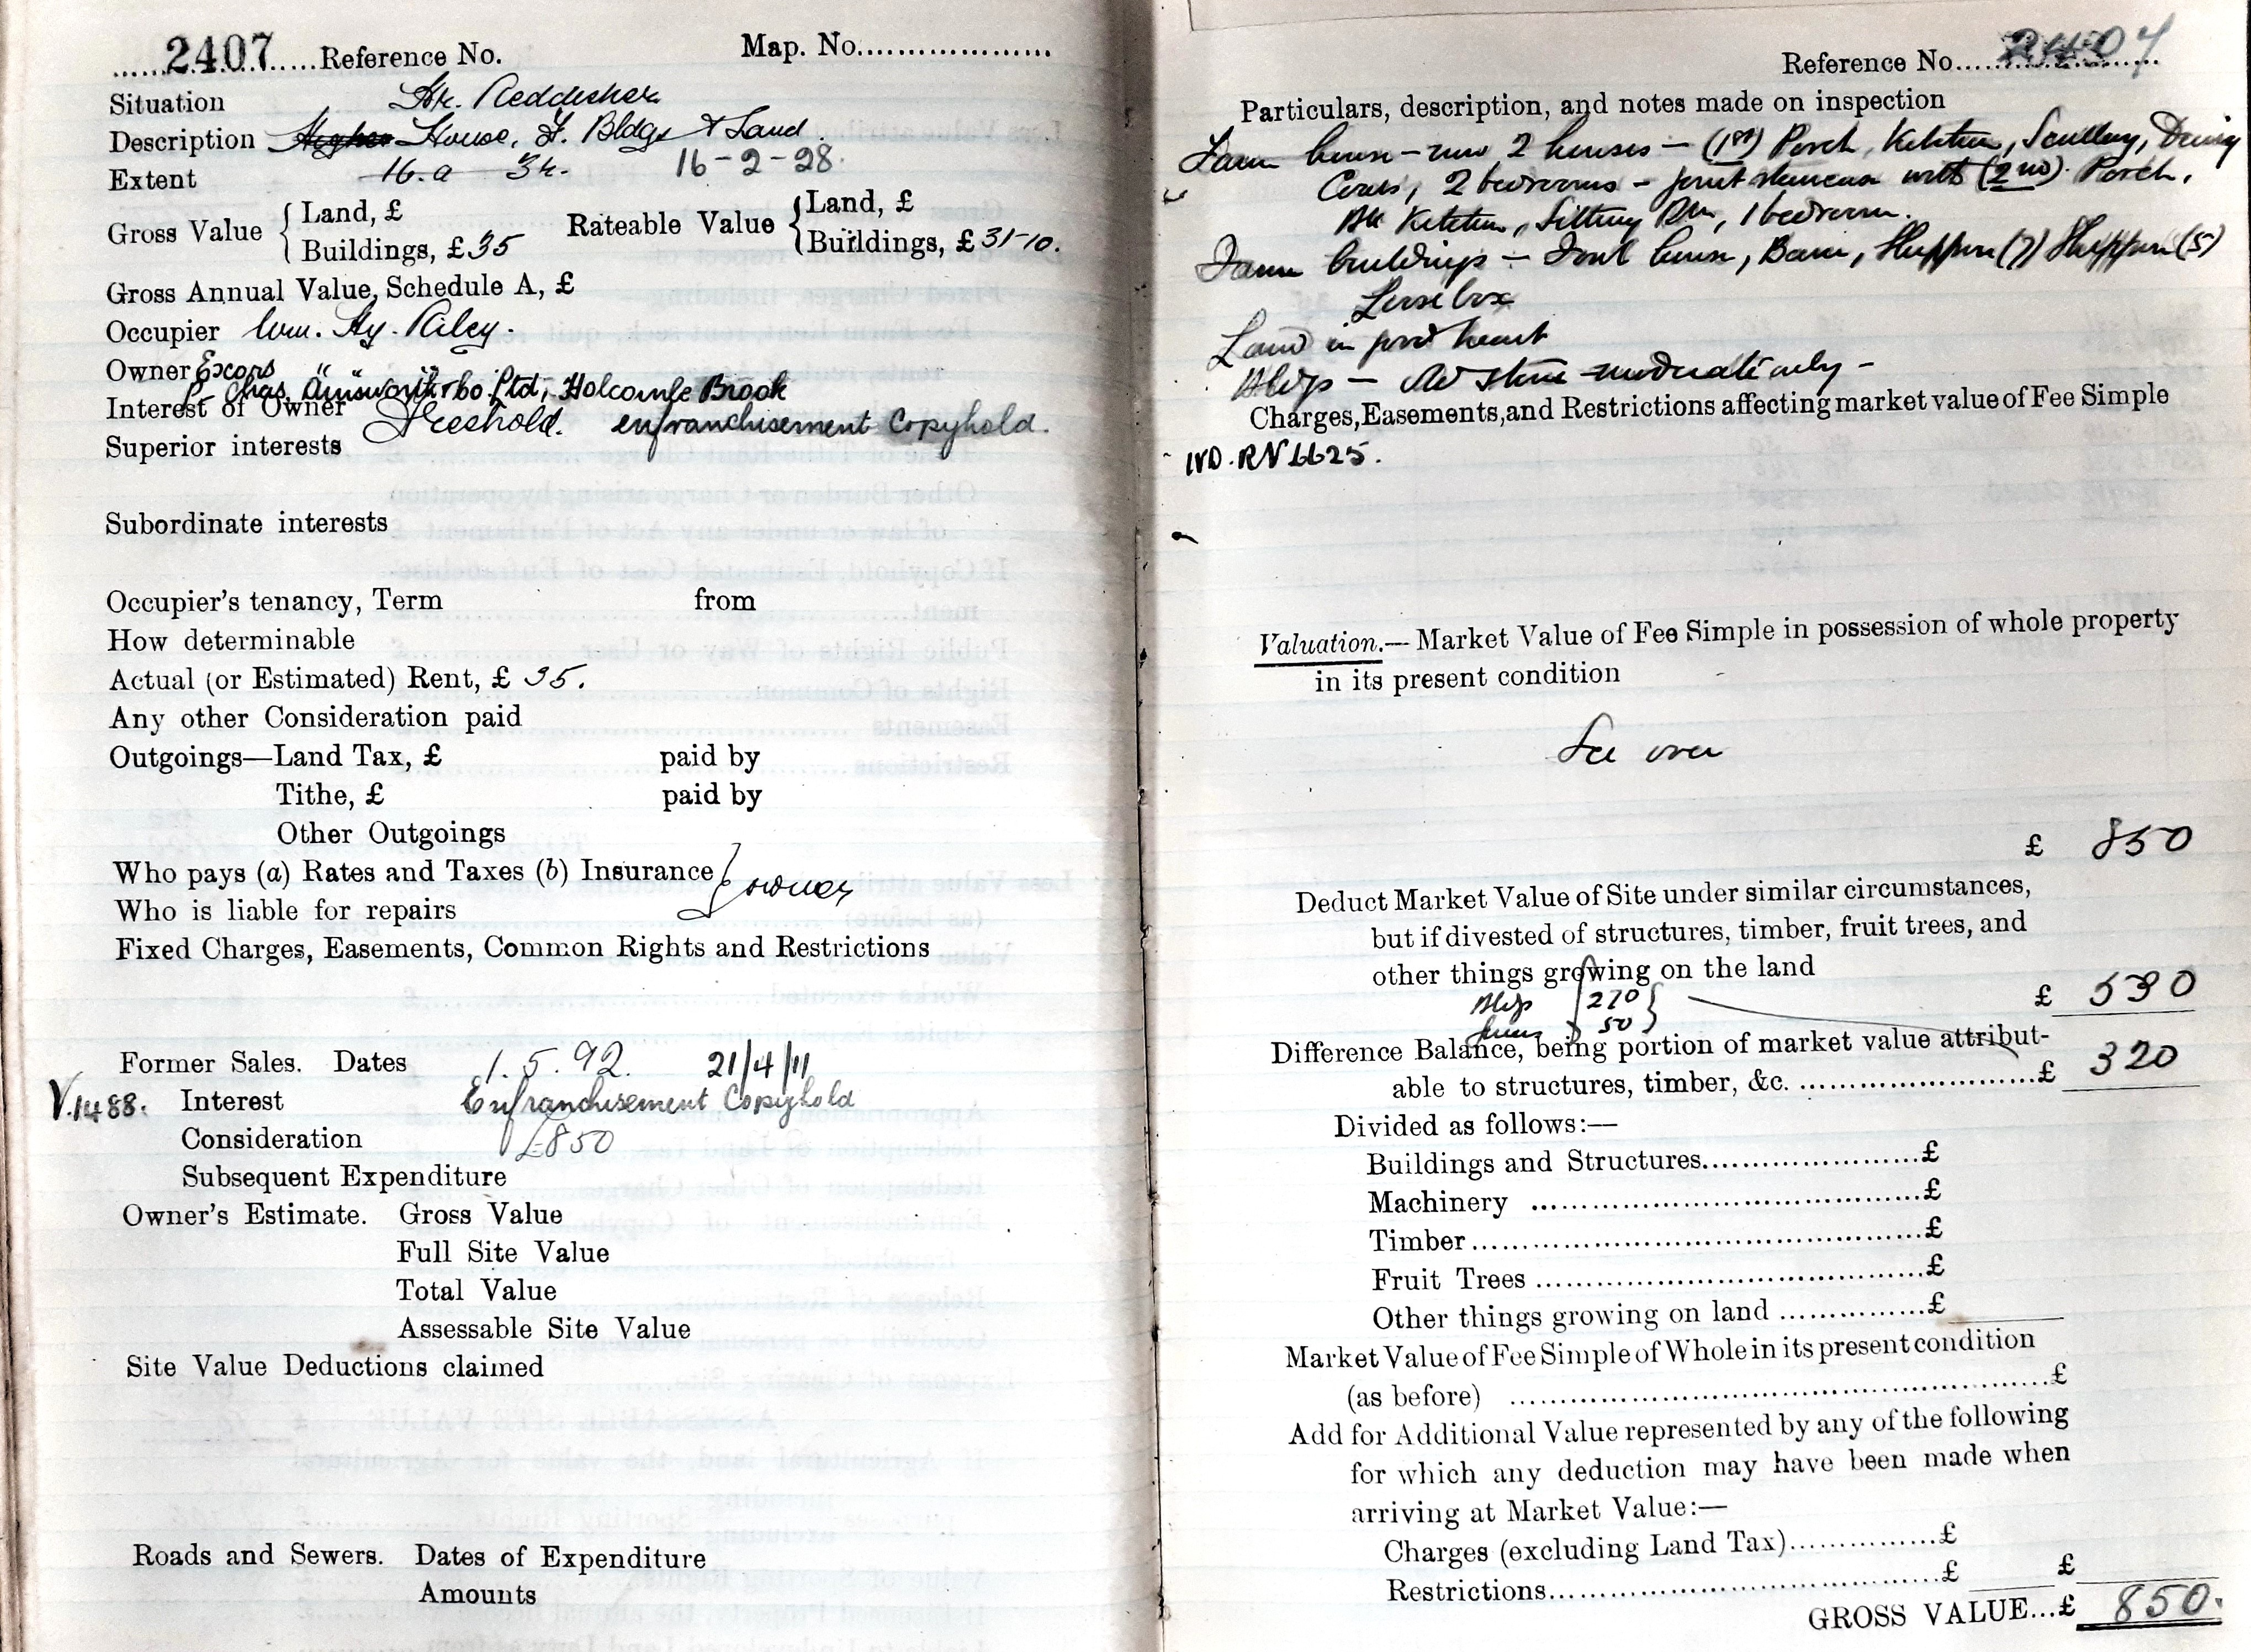 2407 Reference No.
Map. No....................
Situation Hr. Reddisher
Description Higher House, F. Bldgs & Land
Extent 16.a 3r. 16-2-28.
Gross Value { Land, £
Buildings, £35
Rateable Value { Land, £
Buildings, £31-10.
Gross Annual Value, Schedule A, £
Occupier Wm. Hy. Riley.
Owner Excors " " "
Chas. Ainsworth & Co. Ltd, Holcombe Brook
Interest of Owner Freehold. enfranchisement Copyhold.
Superior interests
Subordinate interests
Occupier's tenancy, Term from
How determinable
Actual (or Estimated) Rent, £ 35.
Any other Consideration paid
Outgoings—Land Tax, £ paid by
Tithe, £ paid by
Other Outgoings
Who pays (a) Rates and Taxes (b) Insurance } owner
Who is liable for repairs
Fixed Charges, Easements, Common Rights and Restrictions
Former Sales. Dates 1.5.92. 21/4/11
V.1488. Interest Enfranchisement Copyhold
Consideration £850
Subsequent Expenditure
Owner's Estimate. Gross Value
Full Site Value
Total Value
Assessable Site Value
Site Value Deductions claimed
Roads and Sewers. Dates of Expenditure
Amounts
Reference No. 2407
Particulars, description, and notes made on inspection
Farm house – now 2 houses – (1st) Porch, Kitchen, Scullery, Dairy
2 bedrooms – joint with (2nd). Porch,
Kitchen, Sitting Rm, 1 bedroom.
Farm buildings – house, Barn, Shippon (7) Shippon (5)
Loose box
Land in good heart
Bldgs – Old stone moderate only –
Charges, Easements, and Restrictions affecting market value of Fee Simple
IVD. RN 6625.
Valuation.— Market Value of Fee Simple in possession of whole property
in its present condition
See over
£ 850
Deduct Market Value of Site under similar circumstances,
but if divested of structures, timber, fruit trees, and
other things growing on the land
Bldgs 270
50
£ 530
Difference Balance, being portion of market value attribut-
able to structures, timber, &c. ..............................£ 320
Divided as follows:—
Buildings and Structures.......................£
Machinery .......................................£
Timber...........................................£
Fruit Trees .....................................£
Other things growing on land ...............£
Market Value of Fee Simple of Whole in its present condition
(as before) ...................................................£
Add for Additional Value represented by any of the following
for which any deduction may have been made when
arriving at Market Value:—
Charges (excluding Land Tax)...............£
Restrictions....................................£ £
GROSS VALUE...£ 850.